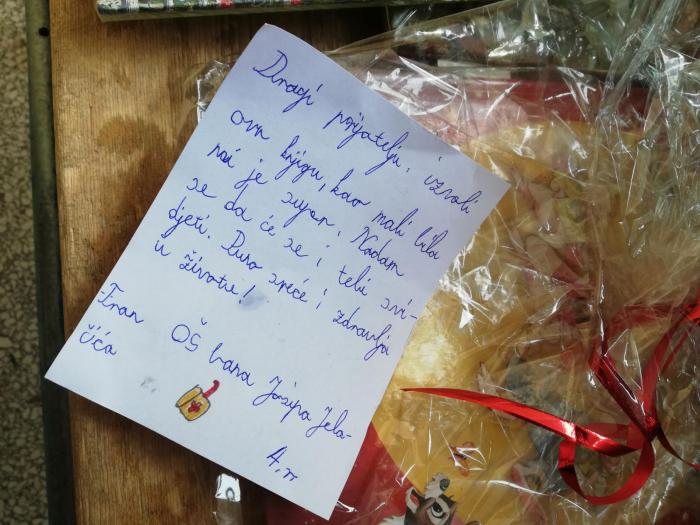 Dragi prijatelju, izvoli
ovu knjigu, kao mali bila
mi je super. Nadam
se da će se i tebi svi-
djeti. Puno sreće i zdravlja
u životu!
Fran OŠ bana Josipa Jela-
čića
4.